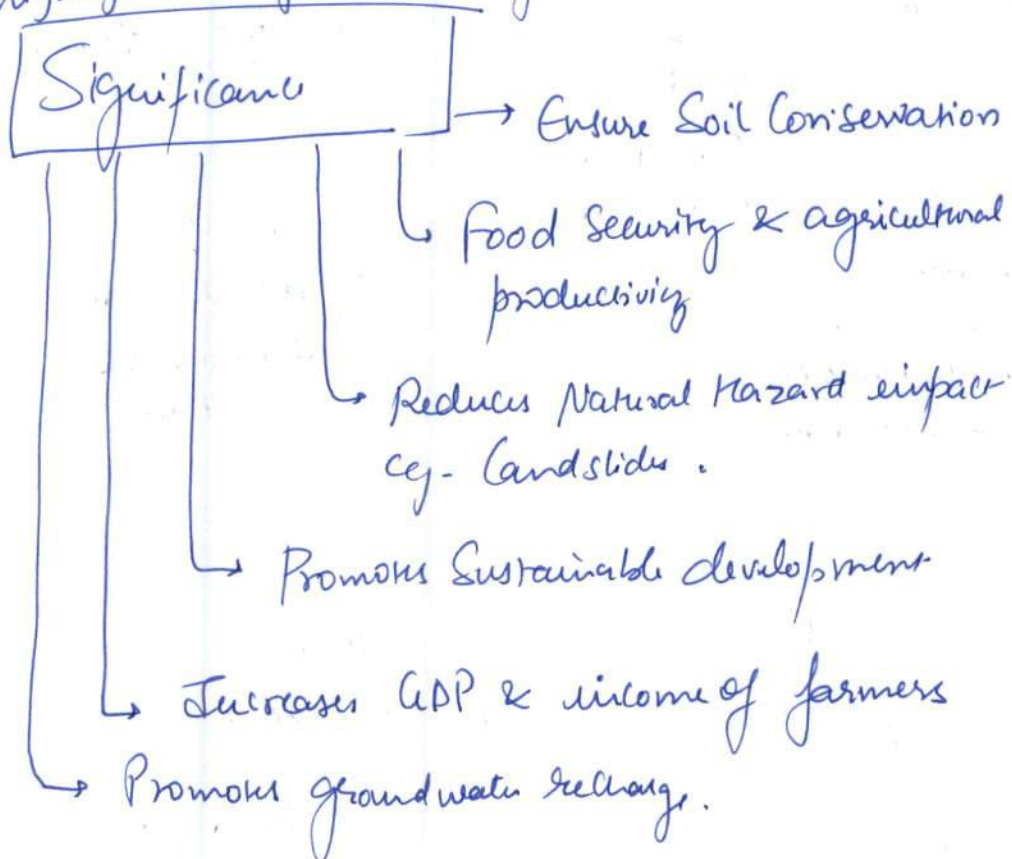 Significance
→ Ensure Soil Conservation
Food Security & agricultural
productivity
Reduces Natural Hazard impact
eg - Landslides.
Promotes Sustainable development
Increases GDP & income of farmers
Promotes groundwater recharge.